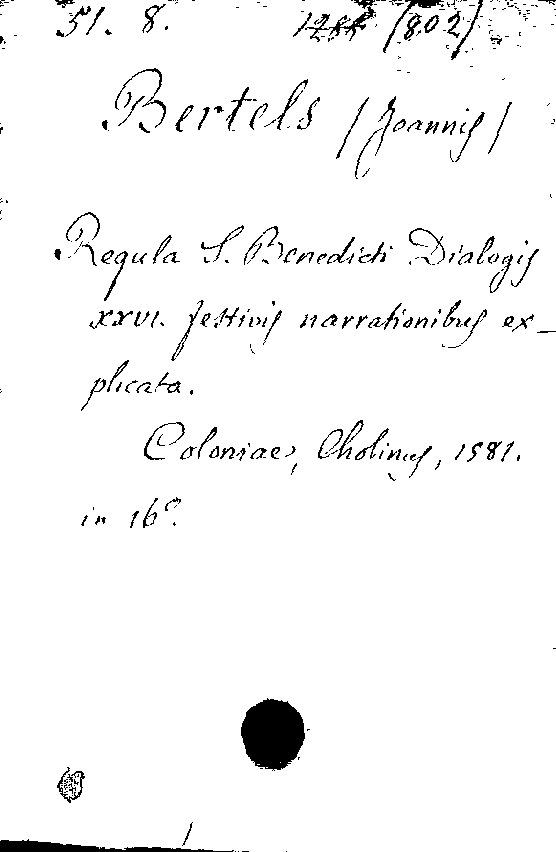 51. 8. (802)
Bertels (Joannis)
Regula S. Benedicti Dialogis
XXVI. festivis narrationibus ex-
plicata.
Coloniae, Cholinus, 1581.
in 16°.